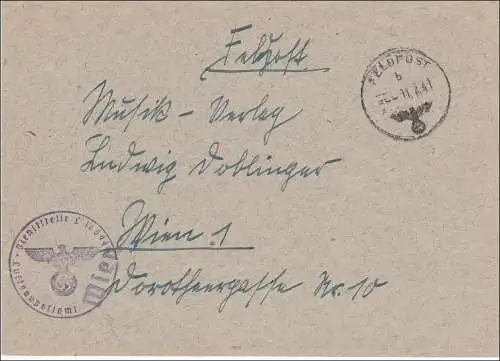 Feldpost
FELDPOST
b
11.7.41
Musik-Verlag
Ludwig Doblinger
Wien 1
Dorotheergasse Nr. 10
Dienststelle L
Luftgaupostamt
Wien